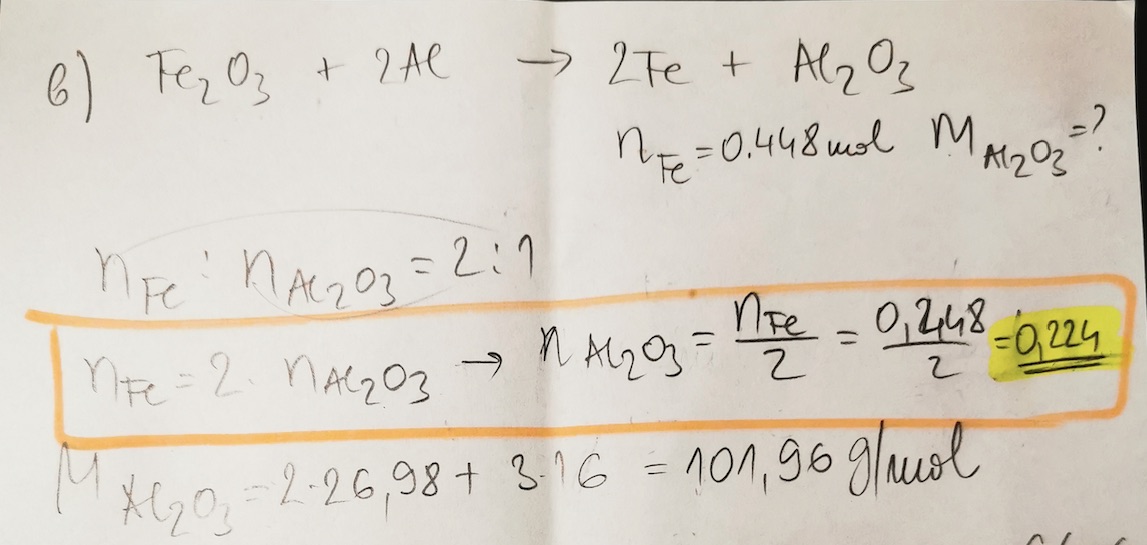 b) Fe₂O₃ + 2Al → 2Fe + Al₂O₃
n_Fe = 0.448 mol M_Al₂O₃ = ?
n_Fe : n_Al₂O₃ = 2 : 1
n_Fe = 2 · n_Al₂O₃ → n_Al₂O₃ = n_Fe/2 = 0,248/2 = 0,224
M_Al₂O₃ = 2·26,98 + 3·16 = 101,96 g/mol